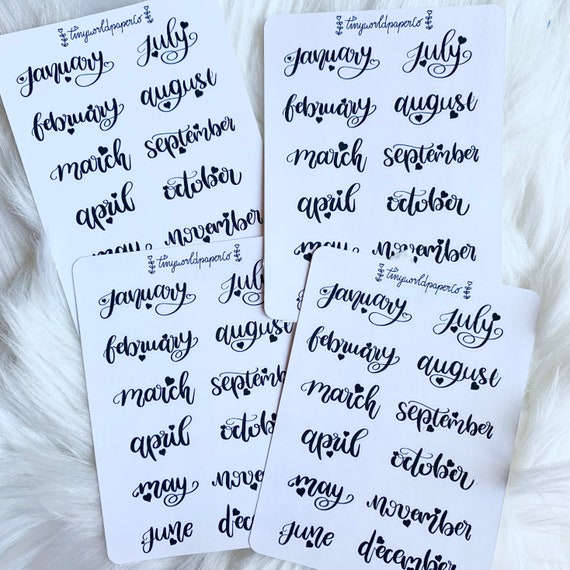 tinyworldpaperco
january july
february august
march september
april october
may november
tinyworldpaperco
january july
february august
march september
april october
may november
tinyworldpaperco
january july
february august
march september
april october
may november
june december
tinyworldpaperco
january july
february august
march september
april october
may november
june december